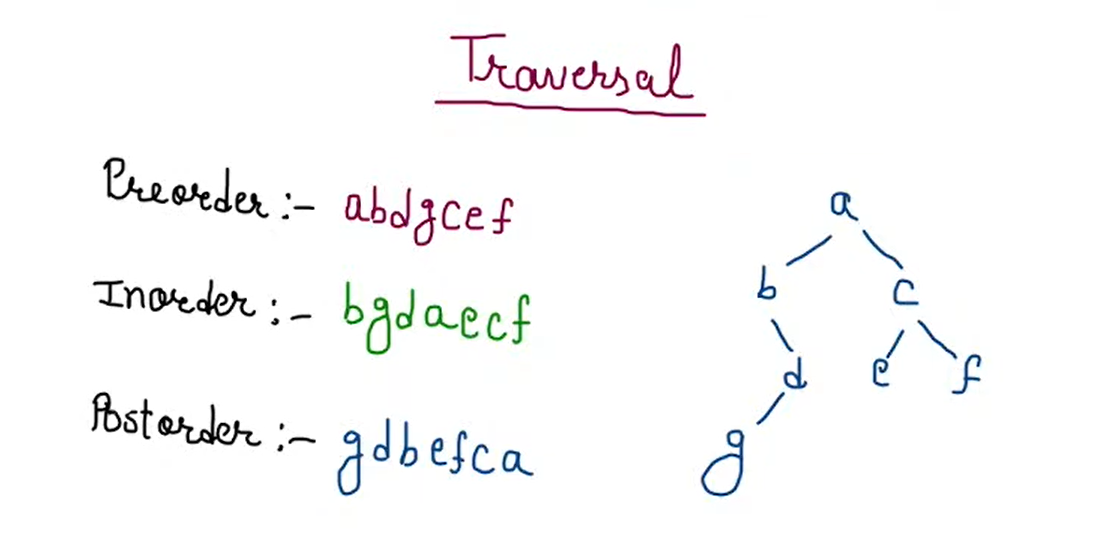 Traversal
Preorder :- abdgcef
Inorder :- bgdaecf
Postorder :- gdbefca
a
b c
d e f
g